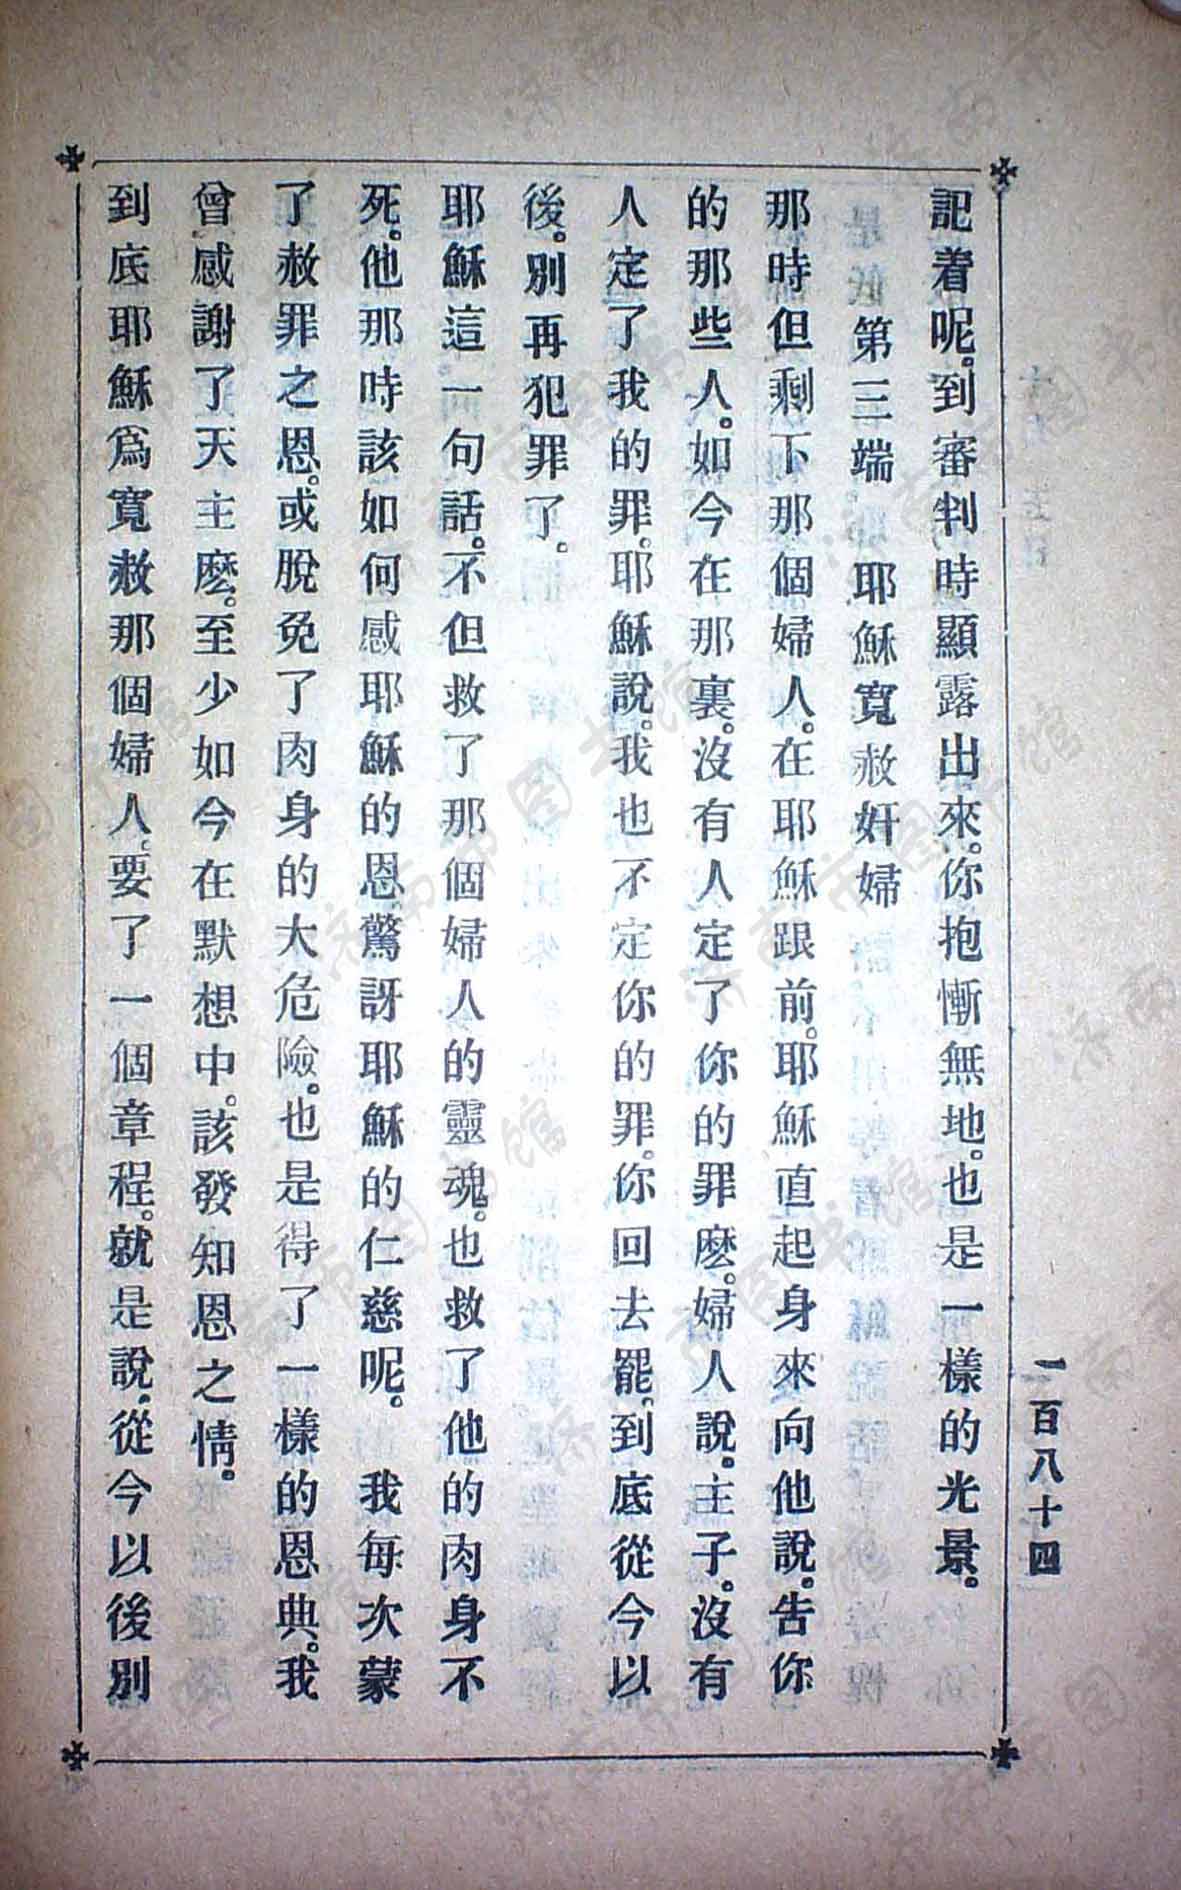 記着呢。到審判時顯露出來。你抱慚無地。也是一樣的光景。
第三端 耶穌寬赦奸婦
那時但剩下那個婦人。在耶穌跟前。耶穌直起身來向他說。告你
的那些人。如今在那裏。沒有人定了你的罪麽。婦人說。主子。沒有
人定了我的罪。耶穌說。我也不定你的罪。你回去罷。到底從今以
後。別再犯罪了。
耶穌這一句話。不但救了那個婦人的靈魂。也救了他的肉身不
死。他那時該如何感耶穌的恩。驚訝耶穌的仁慈呢。 我每次蒙
了赦罪之恩。或脫免了肉身的大危險。也是得了一樣的恩典。我
曾感謝了天主麽。至少如今在默想中。該發知恩之情。
到底耶穌爲寬赦那個婦人。要了一個章程。就是說。從今以後別
一百八十四
济南市图书馆